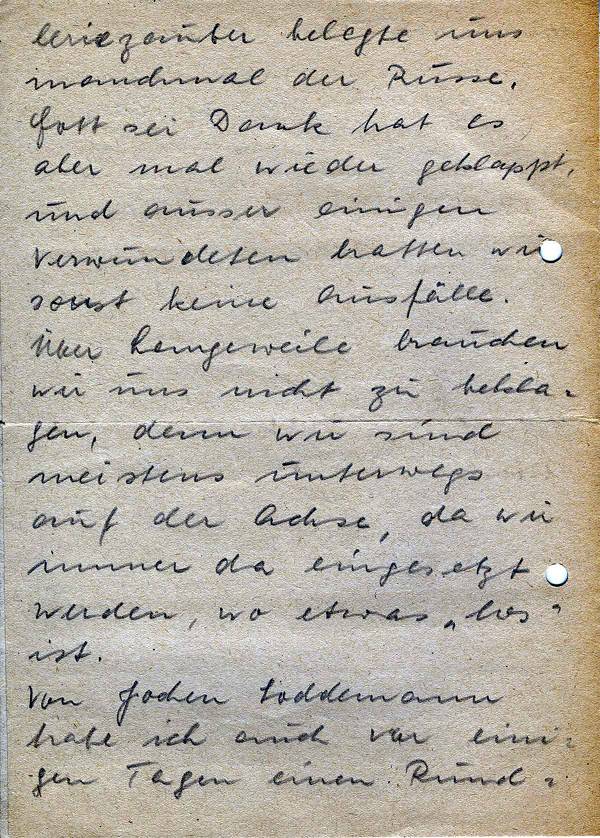 leriezauber belegte uns
manchmal der Russe.
Gott sei Dank hat es
aber mal wieder geklappt,
und ausser einigen
Verwundeten hatten wir
sonst keine Ausfälle.
Über Langeweile brauchen
wir uns nicht zu bekla-
gen, denn wir sind
meistens unterwegs
auf der Achse, da wir
immer da eingesetzt
werden, wo etwas „los"
ist.
Von Jochen Loddemann
habe ich auch vor eini-
gen Tagen einen Rund-